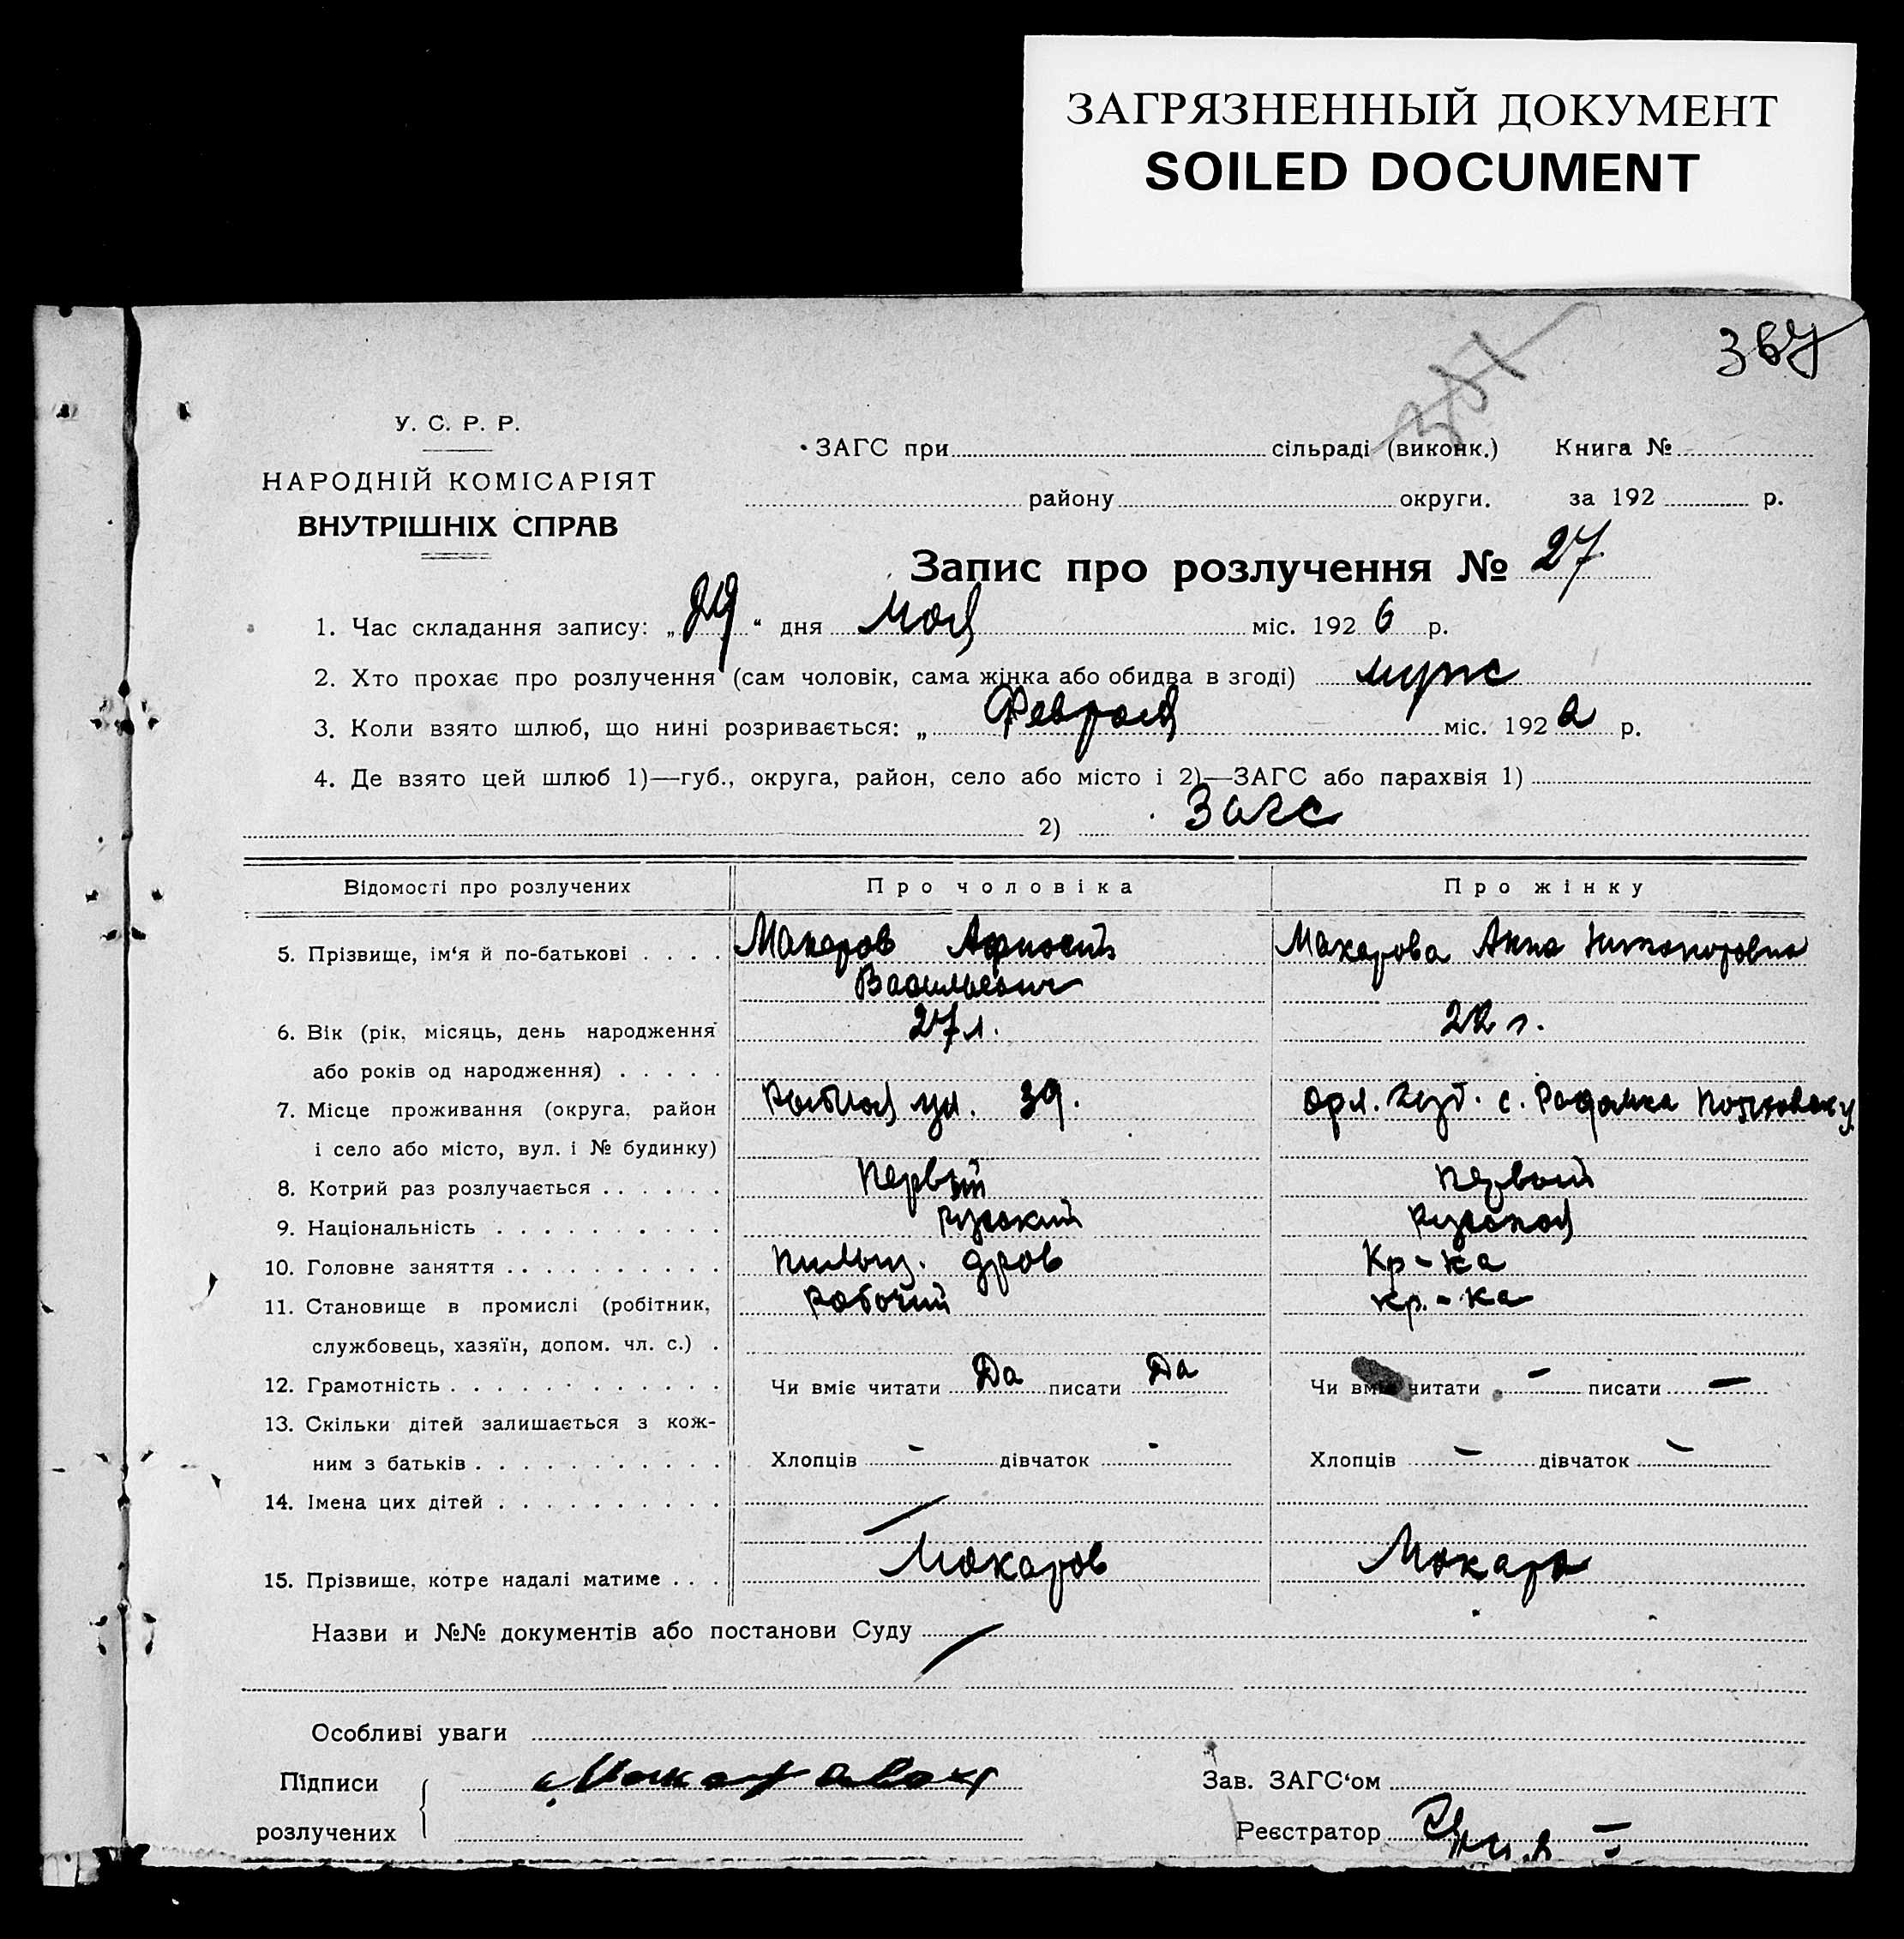 ЗАГРЯЗНЕННЫЙ ДОКУМЕНТ
SOILED DOCUMENT
367
У. С. Р. Р.
НАРОДНІЙ КОМІСАРІЯТ
ВНУТРІШНІХ СПРАВ
ЗАГС при сільраді (виконк.) Книга №
району округи. за 192 р.
Запис про розлучення № 27
1. Час складання запису: „29“ дня мая міс. 1926 р.
2. Хто прохає про розлучення (сам чоловік, сама жінка або обидва в згоді) муж
3. Коли взято шлюб, що нині розривається: „ Февраля міс. 1922 р.
4. Де взято цей шлюб 1)—губ., округа, район, село або місто і 2)—ЗАГС або парахвія 1)
2) Загс
Відомості про розлучених Про чоловіка Про жінку
5. Прізвище, ім‘я й по-батькові . . . . Макаров Васильевич Макарова Анна Никоноровна
6. Вік (рік, місяць, день народження або років од народження) . . . . . 27 л. 22 г.
7. Місце проживання (округа, район і село або місто, вул. і № будинку) ул. 39. Орл. губ. с.
8. Котрий раз розлучається . . . . . . Первый Первый
9. Національність . . . . . . . . . . русский русская
10. Головне заняття . . . . . . . . . . пильщ. дров Кр-ка
11. Становище в промислі (робітник, службовець, хазяїн, допом. чл. с.) . рабочий кр.-ка
12. Грамотність . . . . . . . . . . . . Чи вміє читати Да писати Да Чи вміє читати – писати –
13. Скільки дітей залишається з кож-
ним з батьків . . . . . . . . . . . Хлопців – дівчаток - Хлопців – дівчаток –
14. Імена цих дітей . . . . . . . . . .
15. Прізвише, котре надалі матиме . . . Макаров
Назви и №№ документів або постанови Суду
Особливі уваги
Підписи
розлучених
Зав. ЗАГС‘ом
Реєстратор